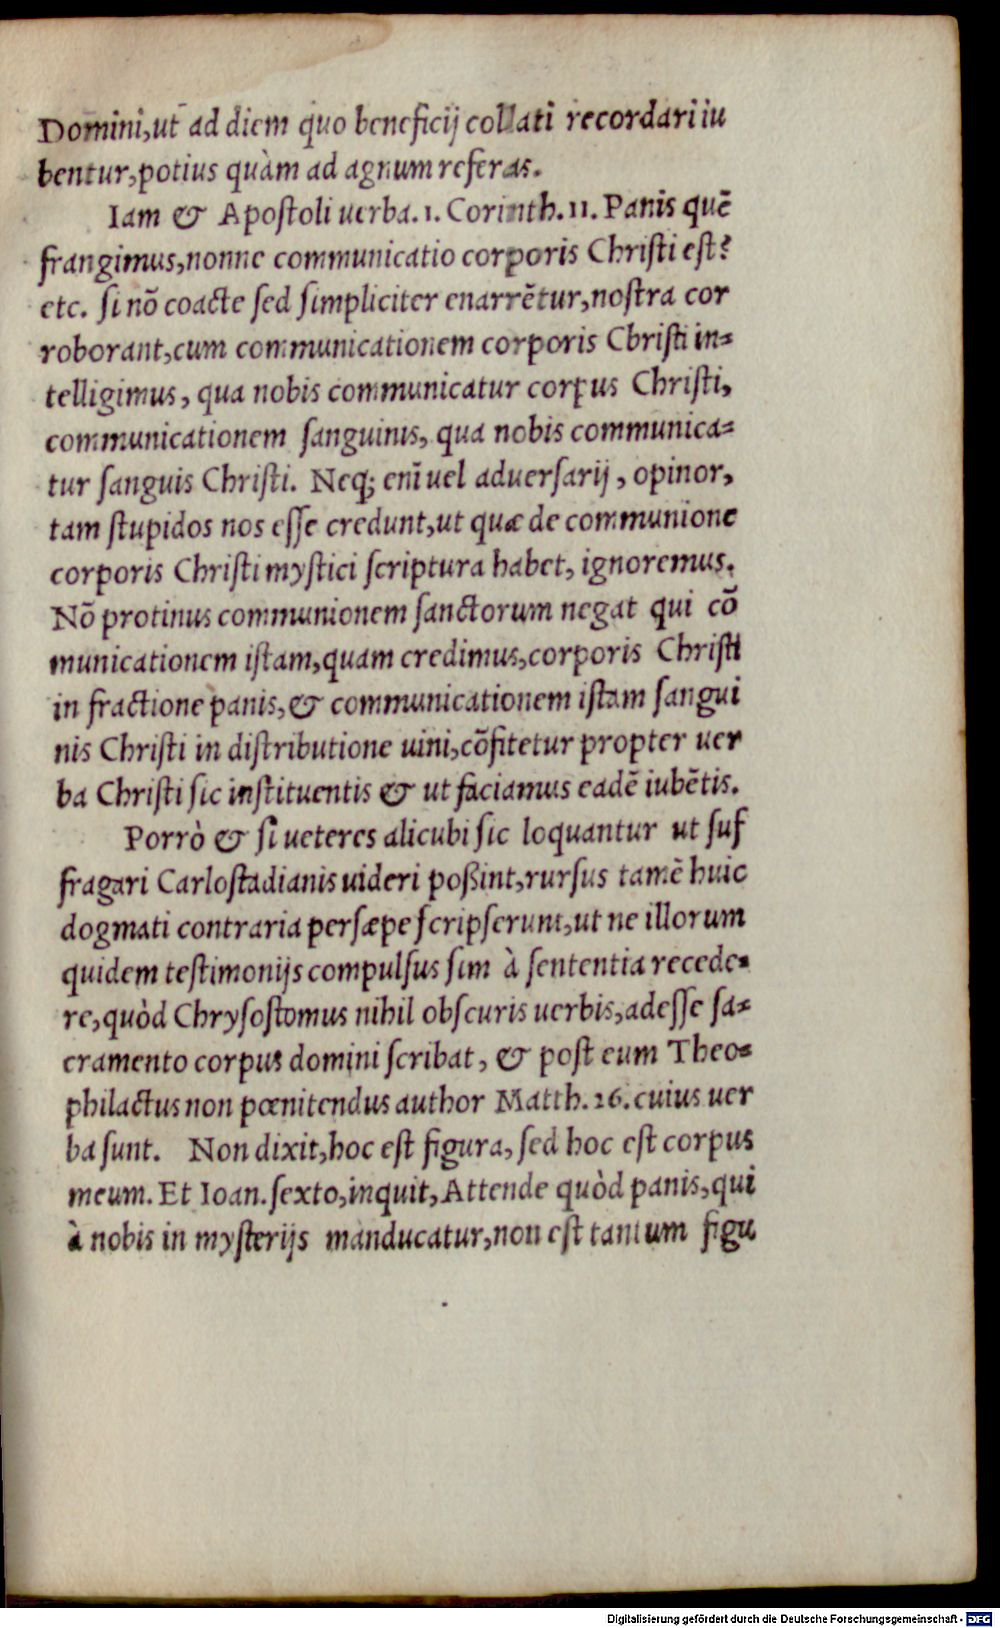 Domini,ut ad diem quo beneficij collati recordari iu
bentur,potius quàm ad agnum referas.
Iam & Apostoli uerba.1. Corinth.11. Panis quē
frangimus,nonne communicatio corporis Christi est?
etc. si nō coacte sed simpliciter enarrētur,nostra cor
roborant,cum communicationem corporis Christi in-
telligimus, qua nobis communicatur corpus Christi,
communicationem sanguinis, qua nobis communica-
tur sanguis Christi. Neq; enī uel aduersarij, opinor,
tam stupidos nos esse credunt,ut quæ de communione
corporis Christi mystici scriptura habet, ignoremus.
Nō protinus communionem sanctorum negat qui cō
municationem istam,quam credimus,corporis Christi
in fractione panis,& communicationem istam sangui
nis Christi in distributione uini,cōfitetur propter uer
ba Christi sic instituentis & ut faciamus eadē iubētis.
Porrò & si ueteres alicubi sic loquantur ut suf
fragari Carlostadianis uideri poßint,rursus tamē huic
dogmati contraria persæpe scripserunt,ut ne illorum
quidem testimonijs compulsus sim à sententia recede-
re,quòd Chrysostomus nihil obscuris uerbis,adesse sa-
cramento corpus domini scribat, & post eum Theo-
philactus non pœnitendus author Matth.26.cuius uer
ba sunt. Non dixit,hoc est figura, sed hoc est corpus
meum. Et Ioan.sexto,inquit,Attende quòd panis,qui
à nobis in mysterijs manducatur,non est tantum figu
Digitalisierung gefördert durch die Deutsche Forschungsgemeinschaft - DFG